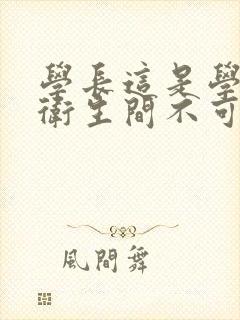 學長這是學
衛生間不可
風間舞